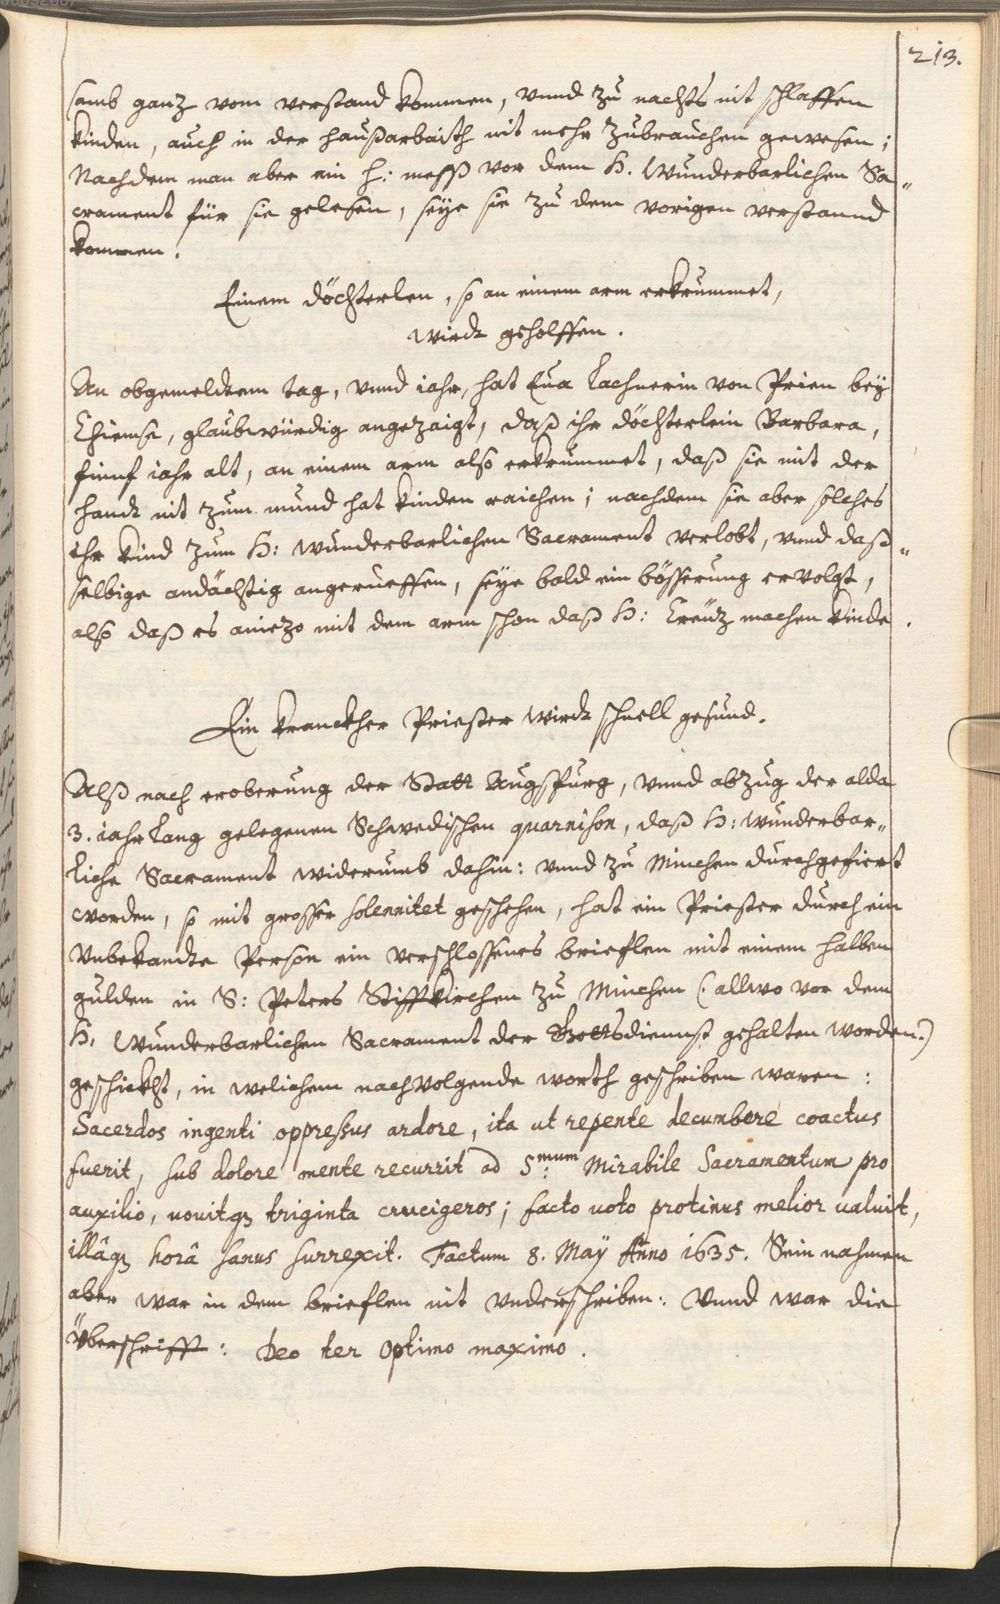 213.
samb ganz vom verstand kommen, vnnd zu nachts nit schlaffen
kinden, auch in der haußarbaith nit mehr zubrauchen gewesen;
Nachdem man aber ein h: mess vor dem H. Wunderbarlichen Sa„
crament für sie gelesen, seye sie zu dem vorigen verstannd
kommen.
Einem döchterlen, so an einem arm erkrummet,
wirdt geholffen.
An obgemeldtem tag, vnnd iahr, hat Eua Lachnerin von Prien bey
Chiemse, glaubwürdig angezaigt, daß ihr döchterlein Barbara,
finnf iahr alt, an einem arm also erkrummet, daß sie mit der
handt nit zum mund hat kinden raichen; nachdem sie aber solches
ihr kind zum H: wunderbarlichen Sacrament verlobt, vnnd daß„
selbige andächtig angerueffen, seye bald ein bösserung ervolgt,
also daß es aniezo mit dem arm schon daß H: Creütz machen kinde.
Ein kranckher Priester wirdt schnell gesund.
Alß nach eroberung der Statt Augspurg, vnnd abzug der alda
3. iahr lang gelegenen Schwedischen quarnison, daß H: wunderbar„
liche Sacrament widerumb dahin: vnnd zu Minchen durchgefiert
worden, so mit grosser solennitet geschehen, hat ein Priester durch ein
Vnbekandte Person ein verschlossenes brieflen mit einem halben
gulden in S: Peters Stifftkirchen zu Minchen (: allwo vor dem
H. Wunderbarlichen Sacrament der Gottsdiennst gehalten worden.)
geschickht, in welichem nachvolgende worth geschriben waren:
Sacerdos ingenti oppressus ardore, ita ut repente decumbere coactus
fuerit, sub dolore mente recurrit ad S:mum Mirabile Sacramentum pro
auxilio, uouitq3 triginta crucigeros; facto uoto protinus melior ualuit,
illâq3 horâ sanus surrexcit. Factum 8. Maÿ Anno 1635. Sein nahmen
aber war in dem brieflen nit vnderschriben: Vnnd war die
Überschrifft: Deo ter Optimo maximo.